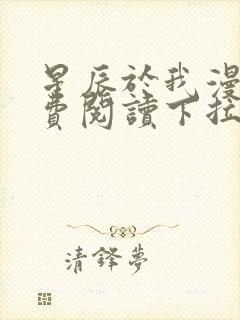 星辰於我漫
費閱讀下拉
清鋒夢